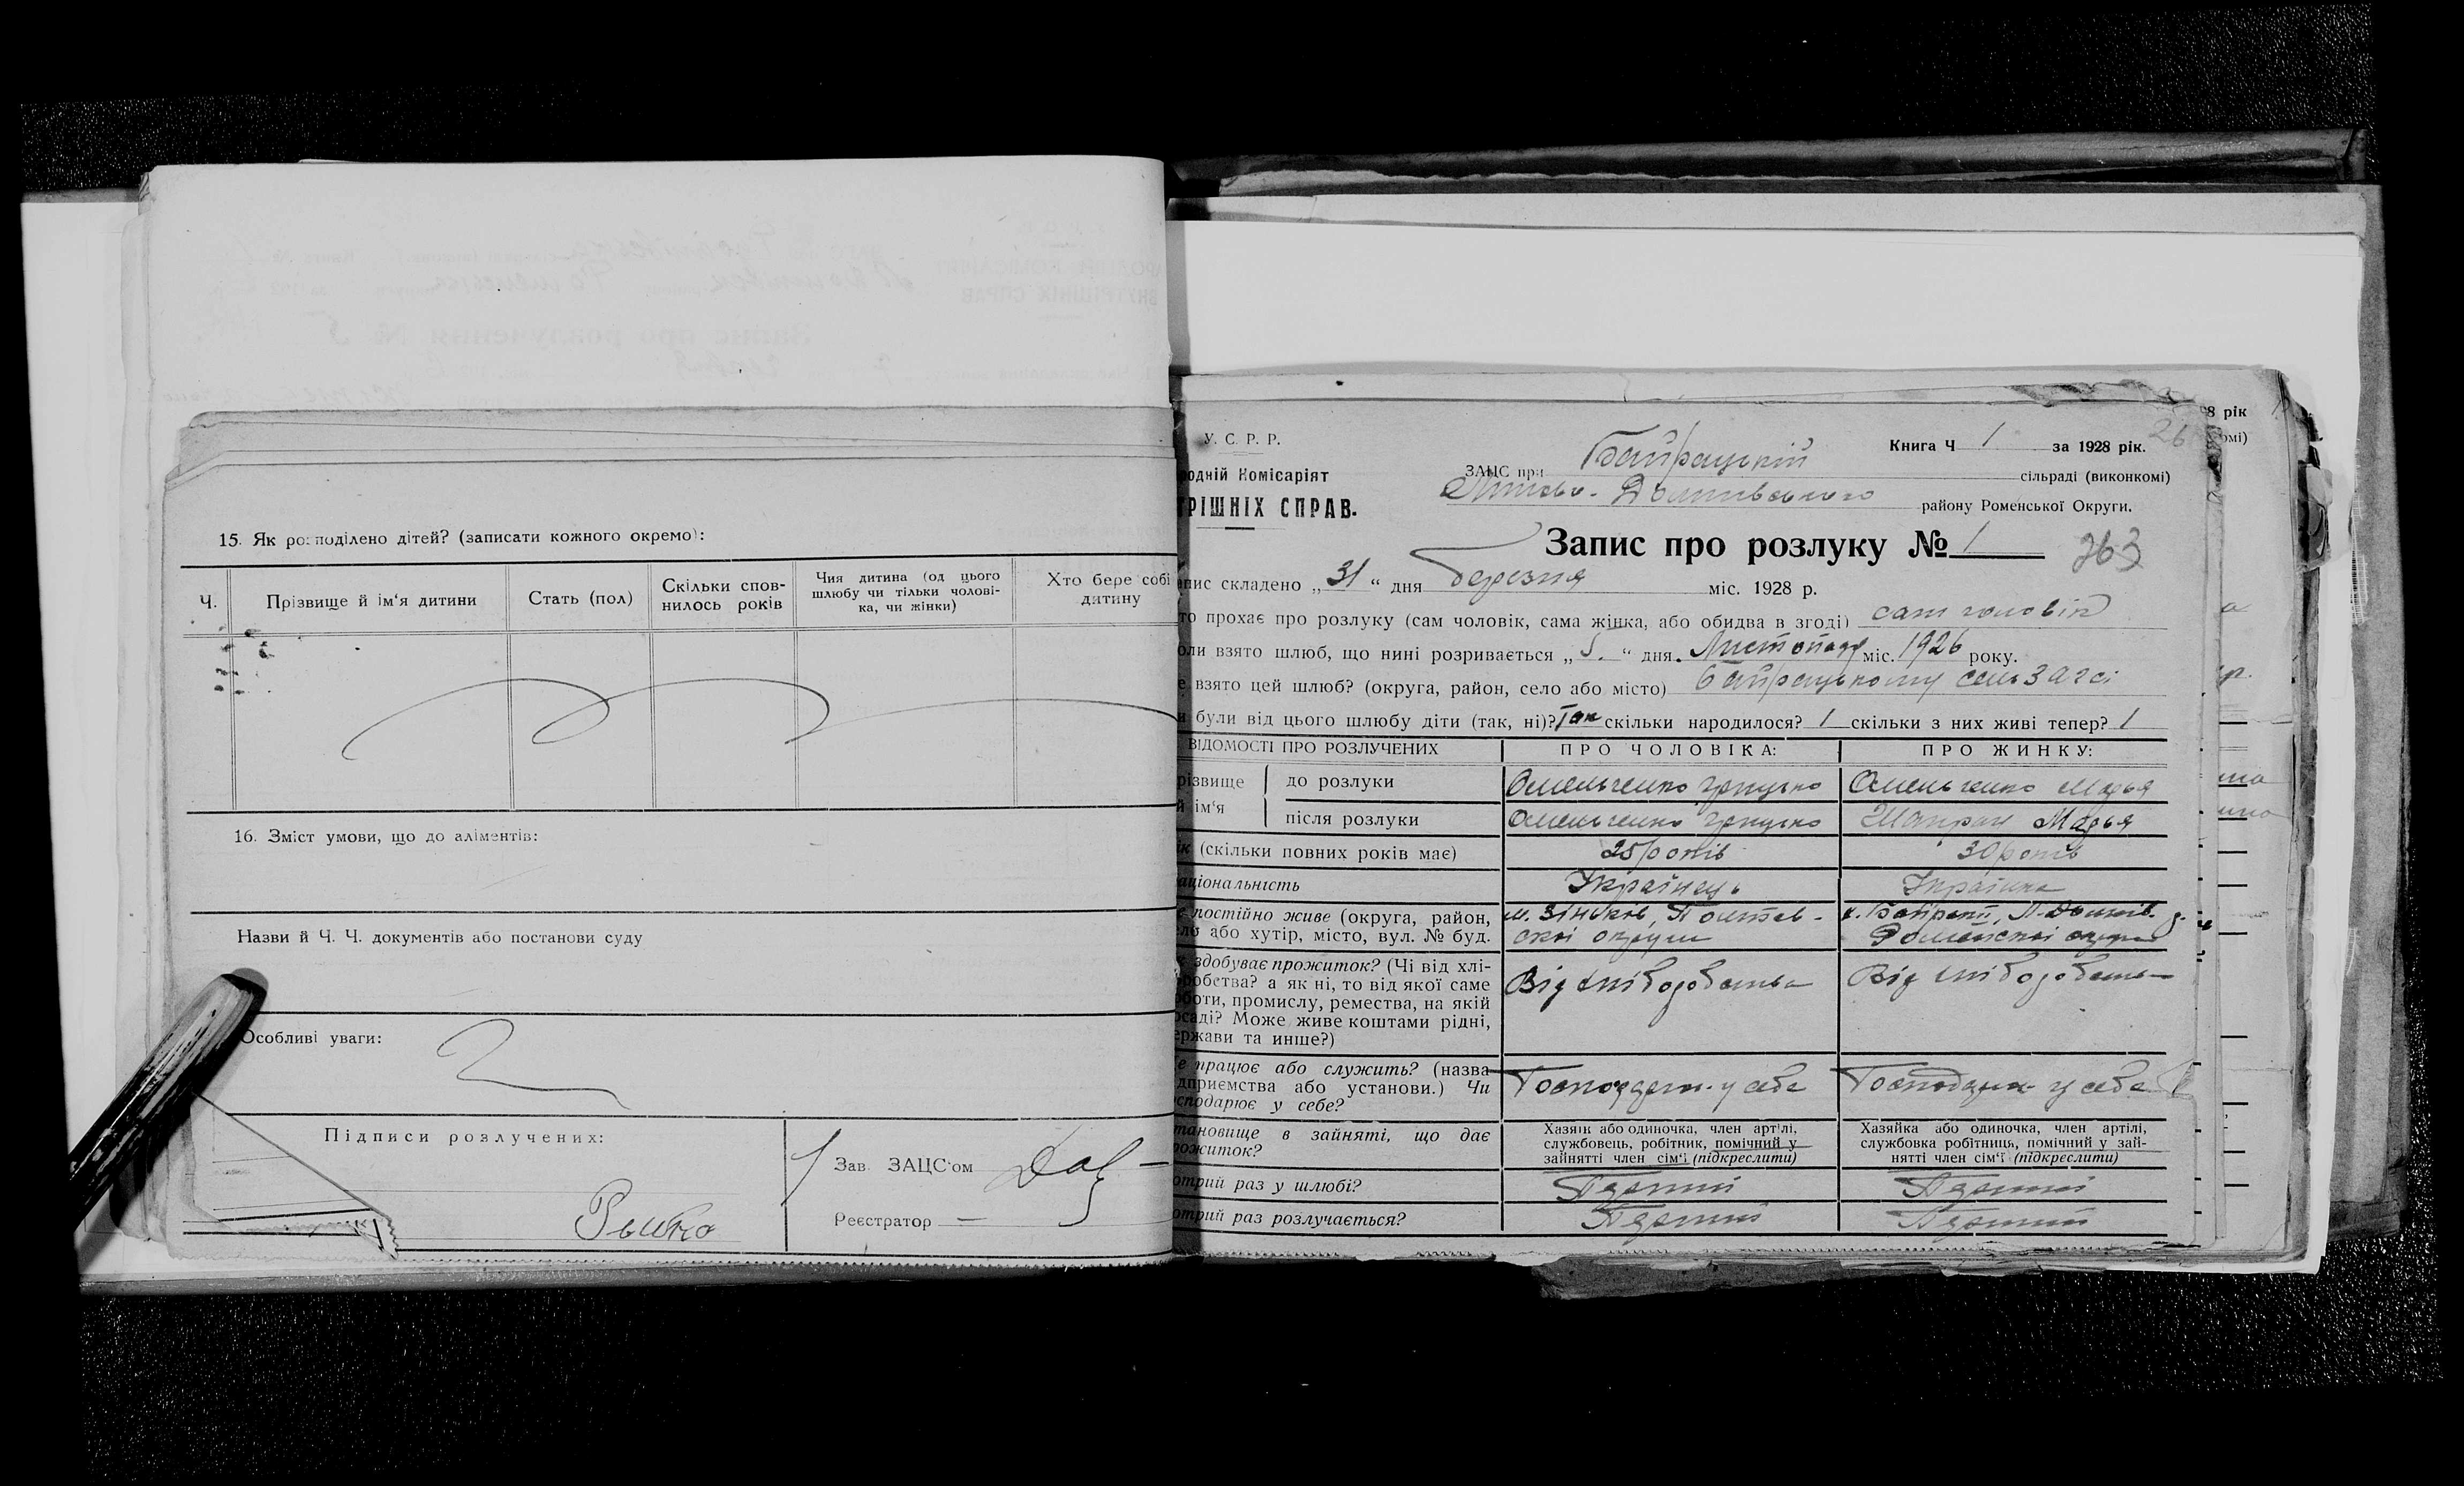 15. Як розподілено дітей? (записати кожного окремо):
Ч.
Прізвище й ім'я дитини
Стать (пол)
Скільки спов-
нилось років
Чия дитина (од цього
шлюбу чи тільки чолові-
ка, чи жінки)
Хто бере собі
дитину
16. Зміст умови, що до аліментів:
Назви й Ч. Ч. документів або постанови суду
Особливі уваги:
Підписи розлучених:
Зав. ЗАЦС'ом
Реєстратор —
У. С. Р. Р.
одній Комісаріят
ТРІШНІХ СПРАВ.
Книга Ч 1 за 1928 рік. 26
ЗАЦС при Байрацькій сільраді (виконкомі)
району Роменської Округи.
Запис про розлуку № 1 763
пис складено „31“ дня березня міс. 1928 р.
то прохає про розлуку (сам чоловік, сама жінка, або обидва в згоді) сам чоловік
оли взято шлюб, що нині розривається „5.“ дня. Листопада міс. 1926 року.
е взято цей шлюб? (округа, район, село або місто) Байрацькому сельзагсі
и були від цього шлюбу діти (так, ні)? Так скільки народилося? 1 скільки з них живі тепер? 1
ВІДОМОСТІ ПРО РОЗЛУЧЕНИХ
ПРО ЧОЛОВІКА:
ПРО ЖИНКУ:
різвище
й ім'я
до розлуки
Омельченко Грицько
Омельченко Марья
після розлуки
Омельченко Грицько
Шапран Марья
ік (скільки повних років має)
25 років
30 років
аціональність
Українець
Українка
е постійно живе (округа, район,
ело або хутір, місто, вул. № буд.
м. Зіньків, Полтав-
ської округи
х. Байраки, Л-Долинів. р.
Роменської округи
к здобуває прожиток? (Чі від хлі-
робства? а як ні, то від якої саме
оботи, промислу, ремества, на якій
осаді? Може живе коштами рідні,
ержави та инше?)
Від хліборобства
Від хліборобства
е працює або служить? (назва
дприємства або установи.) Чи
сподарює у себе?
Господарш. у себе
Господарш. у себе
тановище в зайняті, що дає
рожиток?
Хазяїн або одиночка, член артілі,
службовець, робітник, помічний у
зайнятті член сім'ї (підкреслити)
Хазяйка або одиночка, член артілі,
службовка робітниць, помічний у зай-
нятті член сім'ї (підкреслити)
отрий раз у шлюбі?
Первий
Первий
отрий раз розлучається?
Первий
Первий
8 рік
омі)